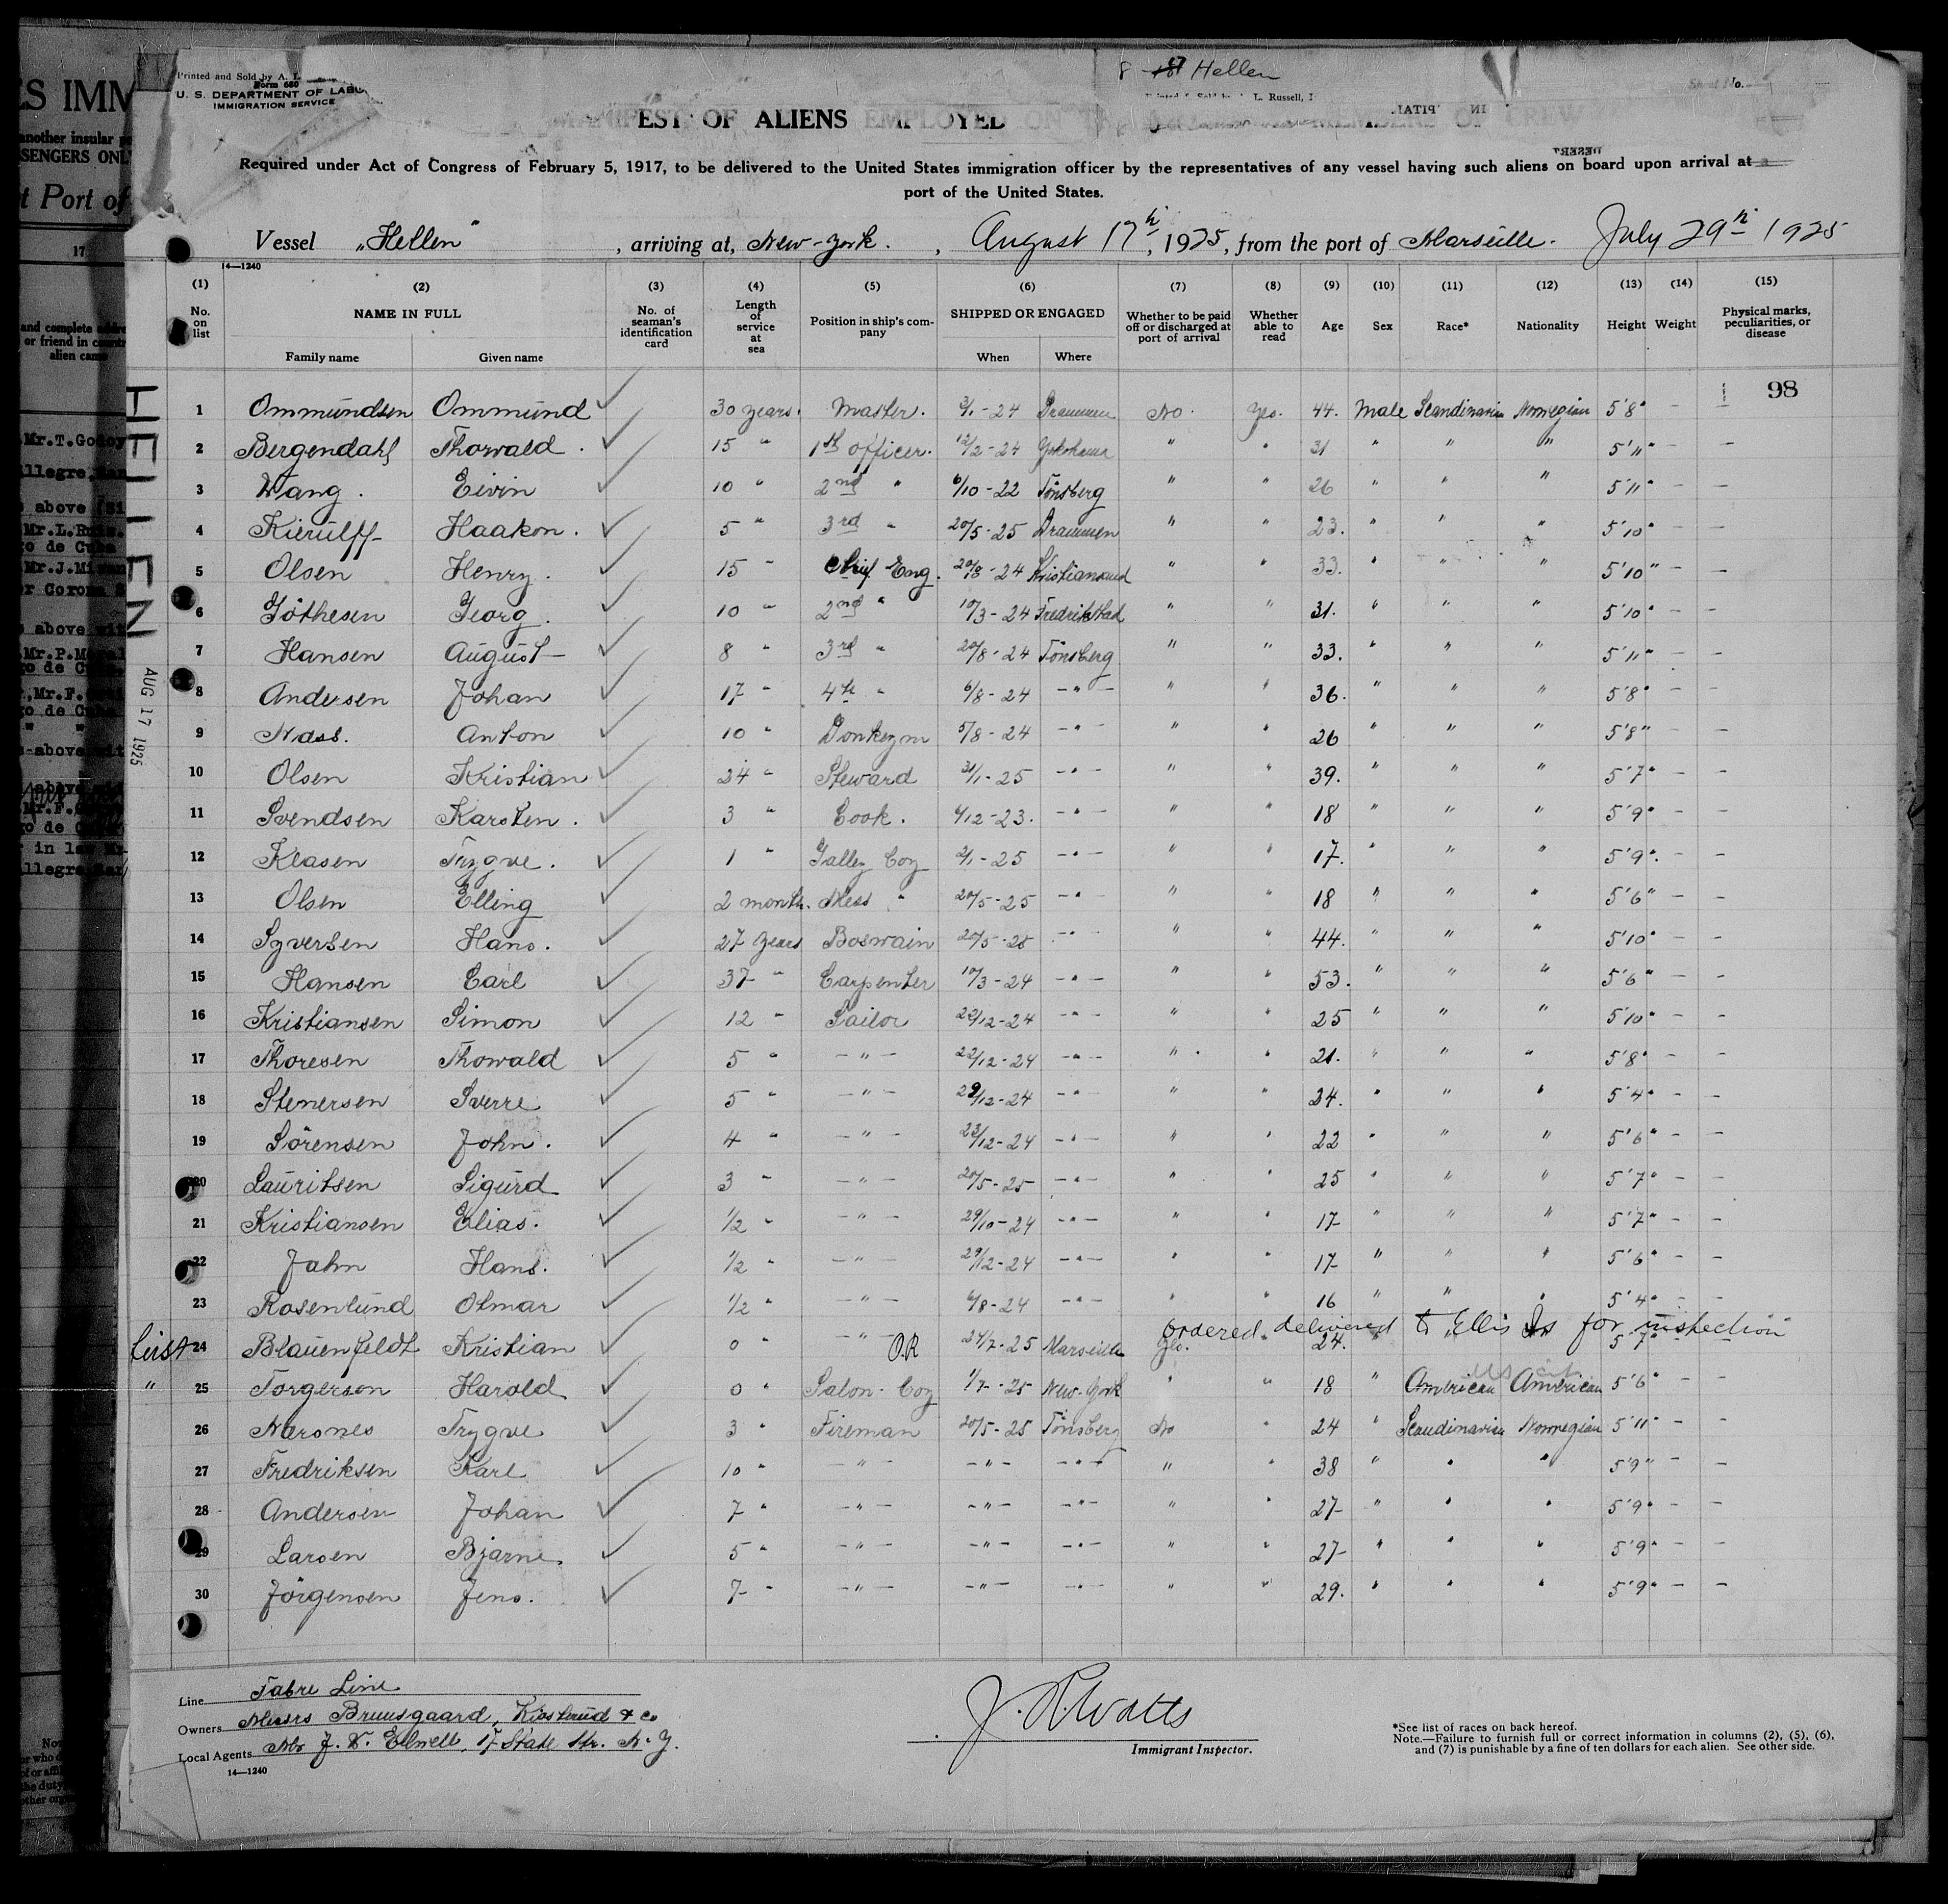 Printed and Sold by A. L.
Form 680
U. S. DEPARTMENT OF LABO
IMMIGRATION SERVICE
8 Hellen
L. Russell,
No.
MANIFEST OF ALIENS EMPLOYED ON THE MEMBERS OF CREW
Required under Act of Congress of February 5, 1917, to be delivered to the United States immigration officer by the representatives of any vessel having such aliens on board upon arrival at a
port of the United States.
Vessel „Hellen" , arriving at, New-York. , August 17th, 1925, from the port of Marseille. July 29th 1925
14—1240
(1) (2) (3) (4) (5) (6) (7) (8) (9) (10) (11) (12) (13) (14) (15)
No. on list NAME IN FULL Family name Given name No. of seaman's identification card Length of service at sea Position in ship's company SHIPPED OR ENGAGED When Where Whether to be paid off or discharged at port of arrival Whether able to read Age Sex Race* Nationality Height Weight Physical marks, peculiarities, or disease
98
HELLEN
AUG 17 1925
1 Ommundsen Ommund 30 years. Master. 3/1-24 Drammen No. Yes. 44. Male Scandinavian Norwegian 5'8" -
2 Bergendahl Thorwald. 15 " 1st officer. 12/2-24 Yokohama " " 31 " " " 5'11" - -
3 Wang. Eivin 10 " 2nd " 6/10-22 Tönsberg " " 26 " " " 5'11" - -
4 Kierulff Haakon. 5 " 3rd " 20/5-25 Drammen " " 23. " " " 5'10" - -
5 Olsen Henry. 15 " Chief Eng. 20/8-24 Kristiansand " " 33. " " " 5'10" - -
6 Göthesen Georg. 10 " 2nd " 10/3-24 Fredrikstad " " 31. " " " 5'10" - -
7 Hansen August 8 " 3rd " 20/8-24 Tönsberg " " 33. " " " 5'11" - -
8 Andersen Johan 17 " 4th " 6/8-24 -"- " " 36. " " " 5'8" - -
9 Nass. Anton 10 " Donkeym 5/8-24 -"- " " 26 " " " 5'8" - -
10 Olsen Kristian 24 " Steward 31/1-25 -"- " " 39. " " " 5'7" - -
11 Svendsen Karsten. 3 " Cook. 4/12-23. -"- " " 18 " " " 5'9" - -
12 Klasen Trygve. 1 " Galley Boy 2/1-25 -"- " " 17. " " " 5'9". - -
13 Olsen Elling 2 month. Mess " 20/5-25 -"- " " 18 " " " 5'6" - -
14 Syversen Hans. 27 years Boswain 20/5-25 -"- " " 44. " " " 5'10" - -
15 Hansen Carl 37 " Carpenter 10/3-24 -"- " " 53. " " " 5'6" - -
16 Kristiansen Simon 12 " Sailor 22/12-24 -"- " " 25 " " " 5'10" - -
17 Thoresen Thorvald 5 " -"- 22/12-24 -"- " " 21. " " " 5'8" - -
18 Stenersen Sverre 5 " -"- 29/12-24 -"- " " 24. " " " 5'4" - -
19 Sörensen John. 4 " -"- 23/12-24 -"- " " 22 " " " 5'6" - -
20 Lauritsen Sigurd 3 " -"- 20/5-25 -"- " " 25 " " " 5'7" - -
21 Kristiansen Elias. 1/2 " -"- 29/10-24 -"- " " 17 " " " 5'7" - -
22 Jahn Hans. 1/2 " -"- 29/12-24 -"- " " 17 " " " 5'6" - -
23 Rosenlund Olmar 1/2 " -"- 6/8-24 -"- " " 16 " " " 5'4" - -
ordered delivered to Ellis Is for inspection
24 Blauenfeldt Kristian 0 " -"- O.R 24/7-25 Marseille Yes. " 24. " 5'7" - -
" 25 Torgerson Harold 0 " Salon-Boy 1/7-25 New-York " " 18 " American American 5'6" - -
26 Narones Trygve 3 " Fireman 20/5-25 Tönsberg No " 24 " Scandinavian Norwegian 5'11" - -
27 Fredriksen Karl 10 " -"- -"- -"- " " 38 " " " 5'9" - -
28 Andersen Johan 7 " -"- -"- -"- " " 27 " " " 5'9" - -
29 Larsen Bjarne. 5 " -"- -"- -"- " " 27 " " " 5'9" - -
30 Jörgensen Jens. 7 " -"- -"- -"- " " 29. " " " 5'9" - -
Line Fabre Line
Owners Messrs Bruusgaard, Kiosterud & co
Local Agents Mr J. W. Elwell, 17 State Str. N.Y.
14—1240
Immigrant Inspector.
*See list of races on back hereof.
Note.—Failure to furnish full or correct information in columns (2), (5), (6),
and (7) is punishable by a fine of ten dollars for each alien. See other side.